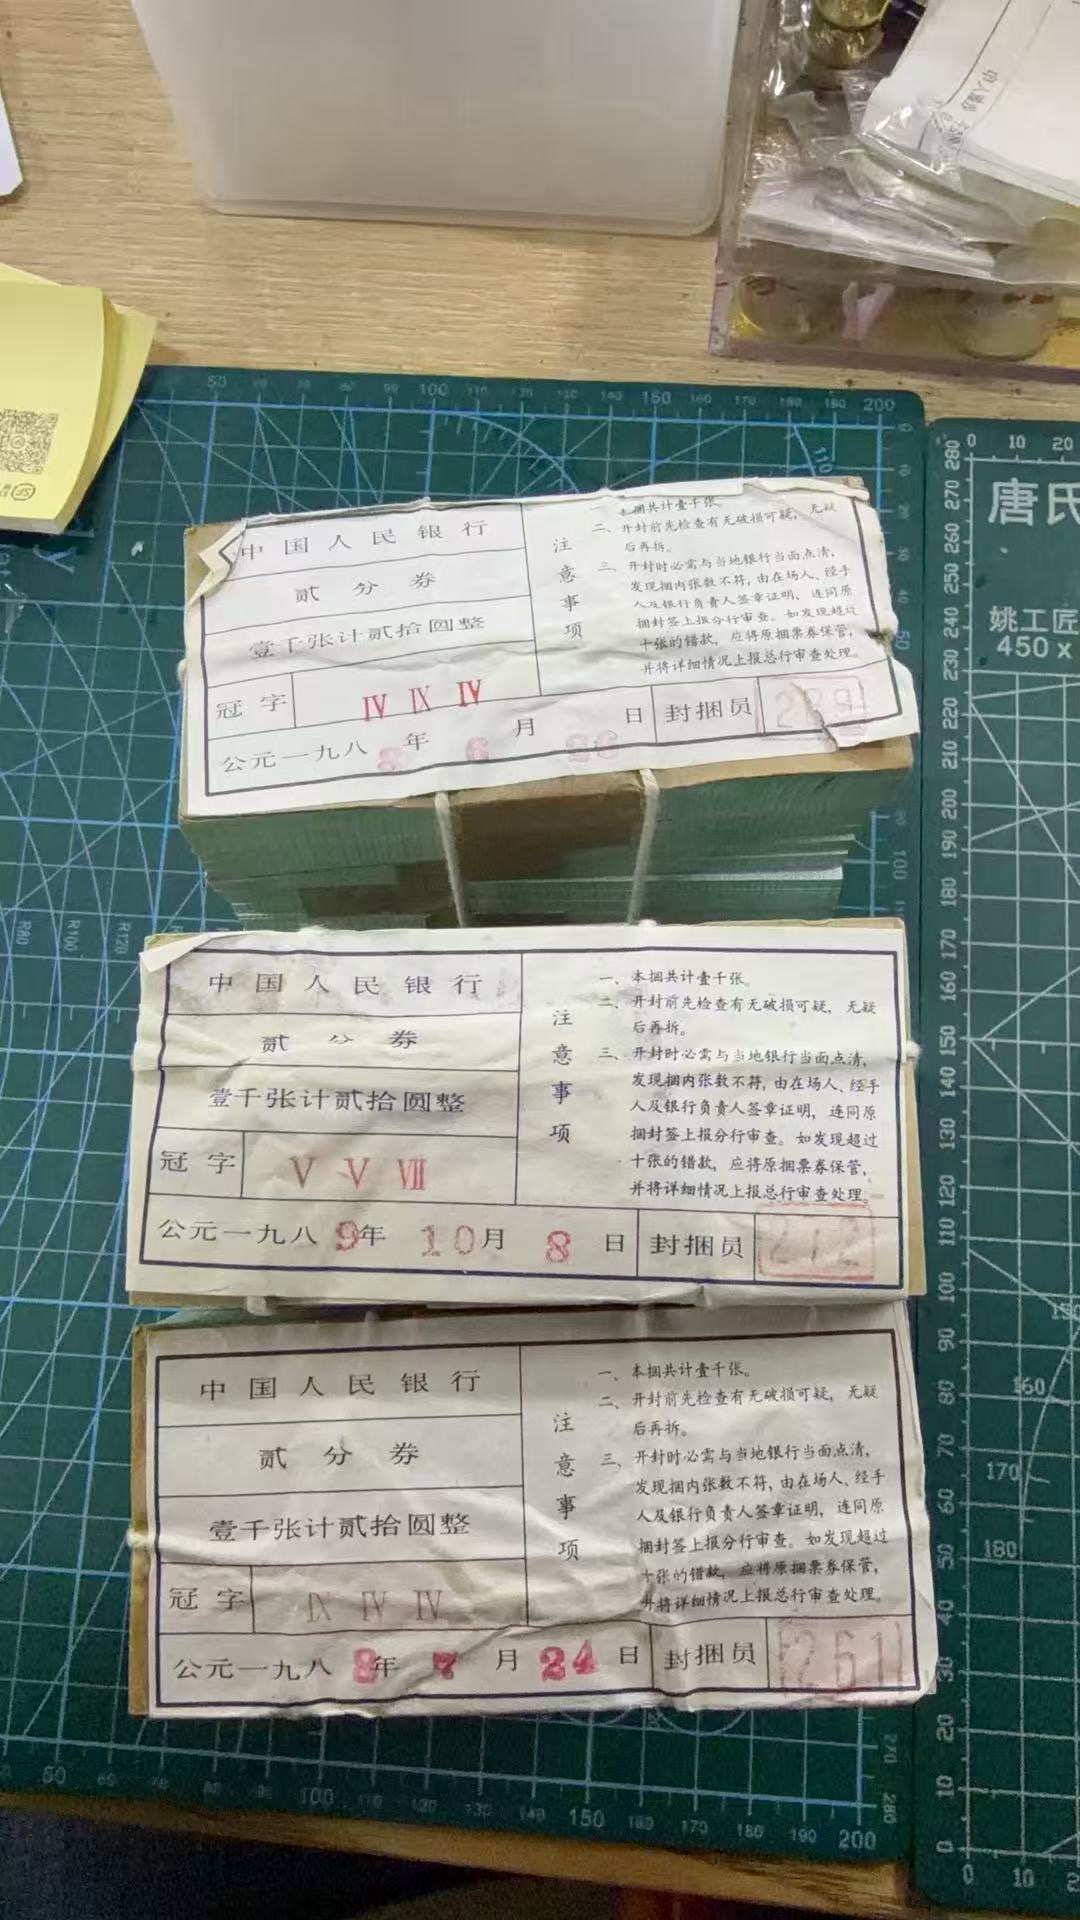 50 100 110 150 160 190 200
280 0 10 20
唐氏
姚工匠
450 x
中国人民银行
贰分券
壹千张计贰拾圆整
冠字 Ⅳ Ⅸ Ⅳ
公元一九八8年6月26日 封捆员
注意事项
一、本捆共计壹千张。
二、开封前先检查有无破损可疑，无疑
后再拆。
三、开封时必需与当地银行当面点清，
发现捆内张数不符，由在场人、经手
人及银行负责人签章证明，连同原
捆封签上报分行审查。如发现超过
十张的错款，应将原捆票券保管，
并将详细情况上报总行审查处理。
中国人民银行
贰分券
壹千张计贰拾圆整
冠字 Ⅴ Ⅴ Ⅷ
公元一九八9年10月8日 封捆员 272
注意事项
一、本捆共计壹千张。
二、开封前先检查有无破损可疑，无疑
后再拆。
三、开封时必需与当地银行当面点清，
发现捆内张数不符，由在场人、经手
人及银行负责人签章证明，连同原
捆封签上报分行审查。如发现超过
十张的错款，应将原捆票券保管，
并将详细情况上报总行审查处理。
中国人民银行
贰分券
壹千张计贰拾圆整
冠字 Ⅸ Ⅳ Ⅳ
公元一九八8年7月24日 封捆员 261
注意事项
一、本捆共计壹千张。
二、开封前先检查有无破损可疑，无疑
后再拆。
三、开封时必需与当地银行当面点清，
发现捆内张数不符，由在场人、经手
人及银行负责人签章证明，连同原
捆封签上报分行审查。如发现超过
十张的错款，应将原捆票券保管，
并将详细情况上报总行审查处理。
50 100 150 160 170 180 190 200
0 10